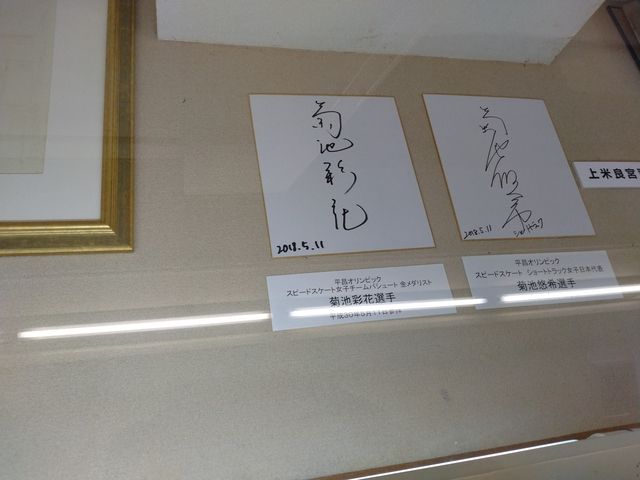 菊池彩花
2018.5.11
平昌オリンピック
スピードスケート女子チームパシュート 金メダリスト
菊池彩花選手
平成30年5月11日参拝
菊池悠希
2018.5.11
ショートトラック
平昌オリンピック
スピードスケート ショートトラック女子日本代表
菊池悠希選手
上米良宮司